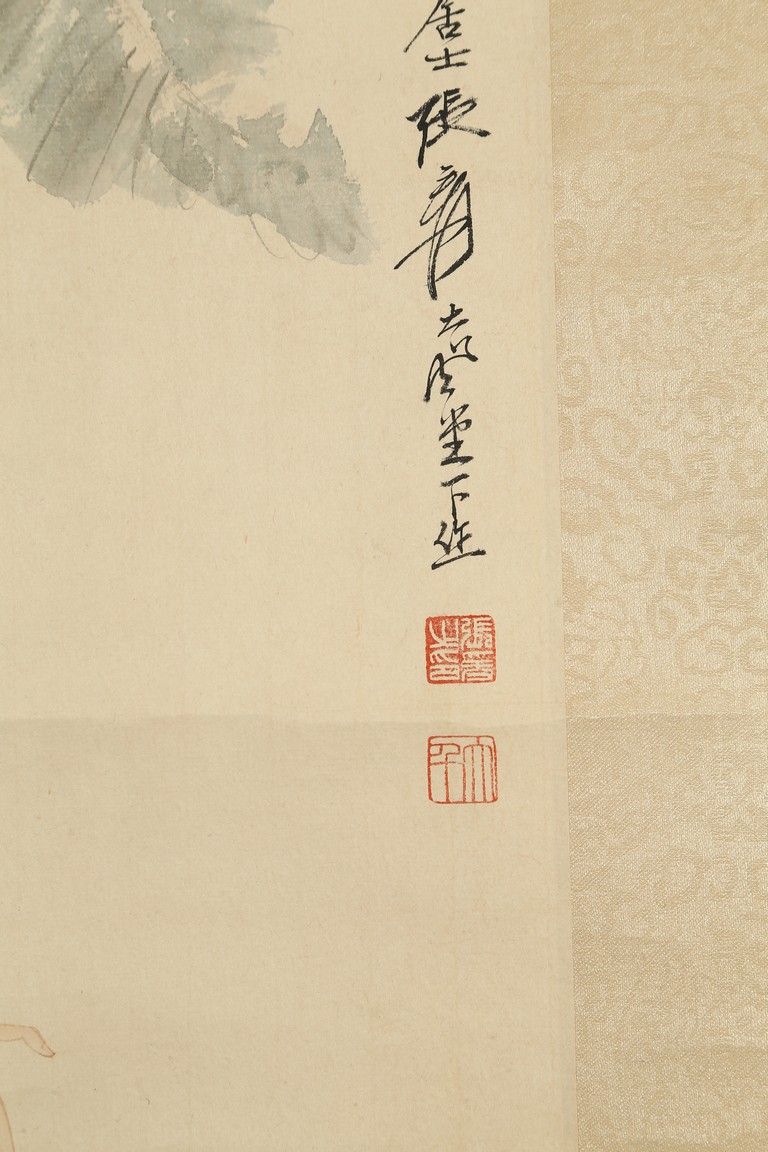 居士張爰大風堂下作
張爰之印
大千